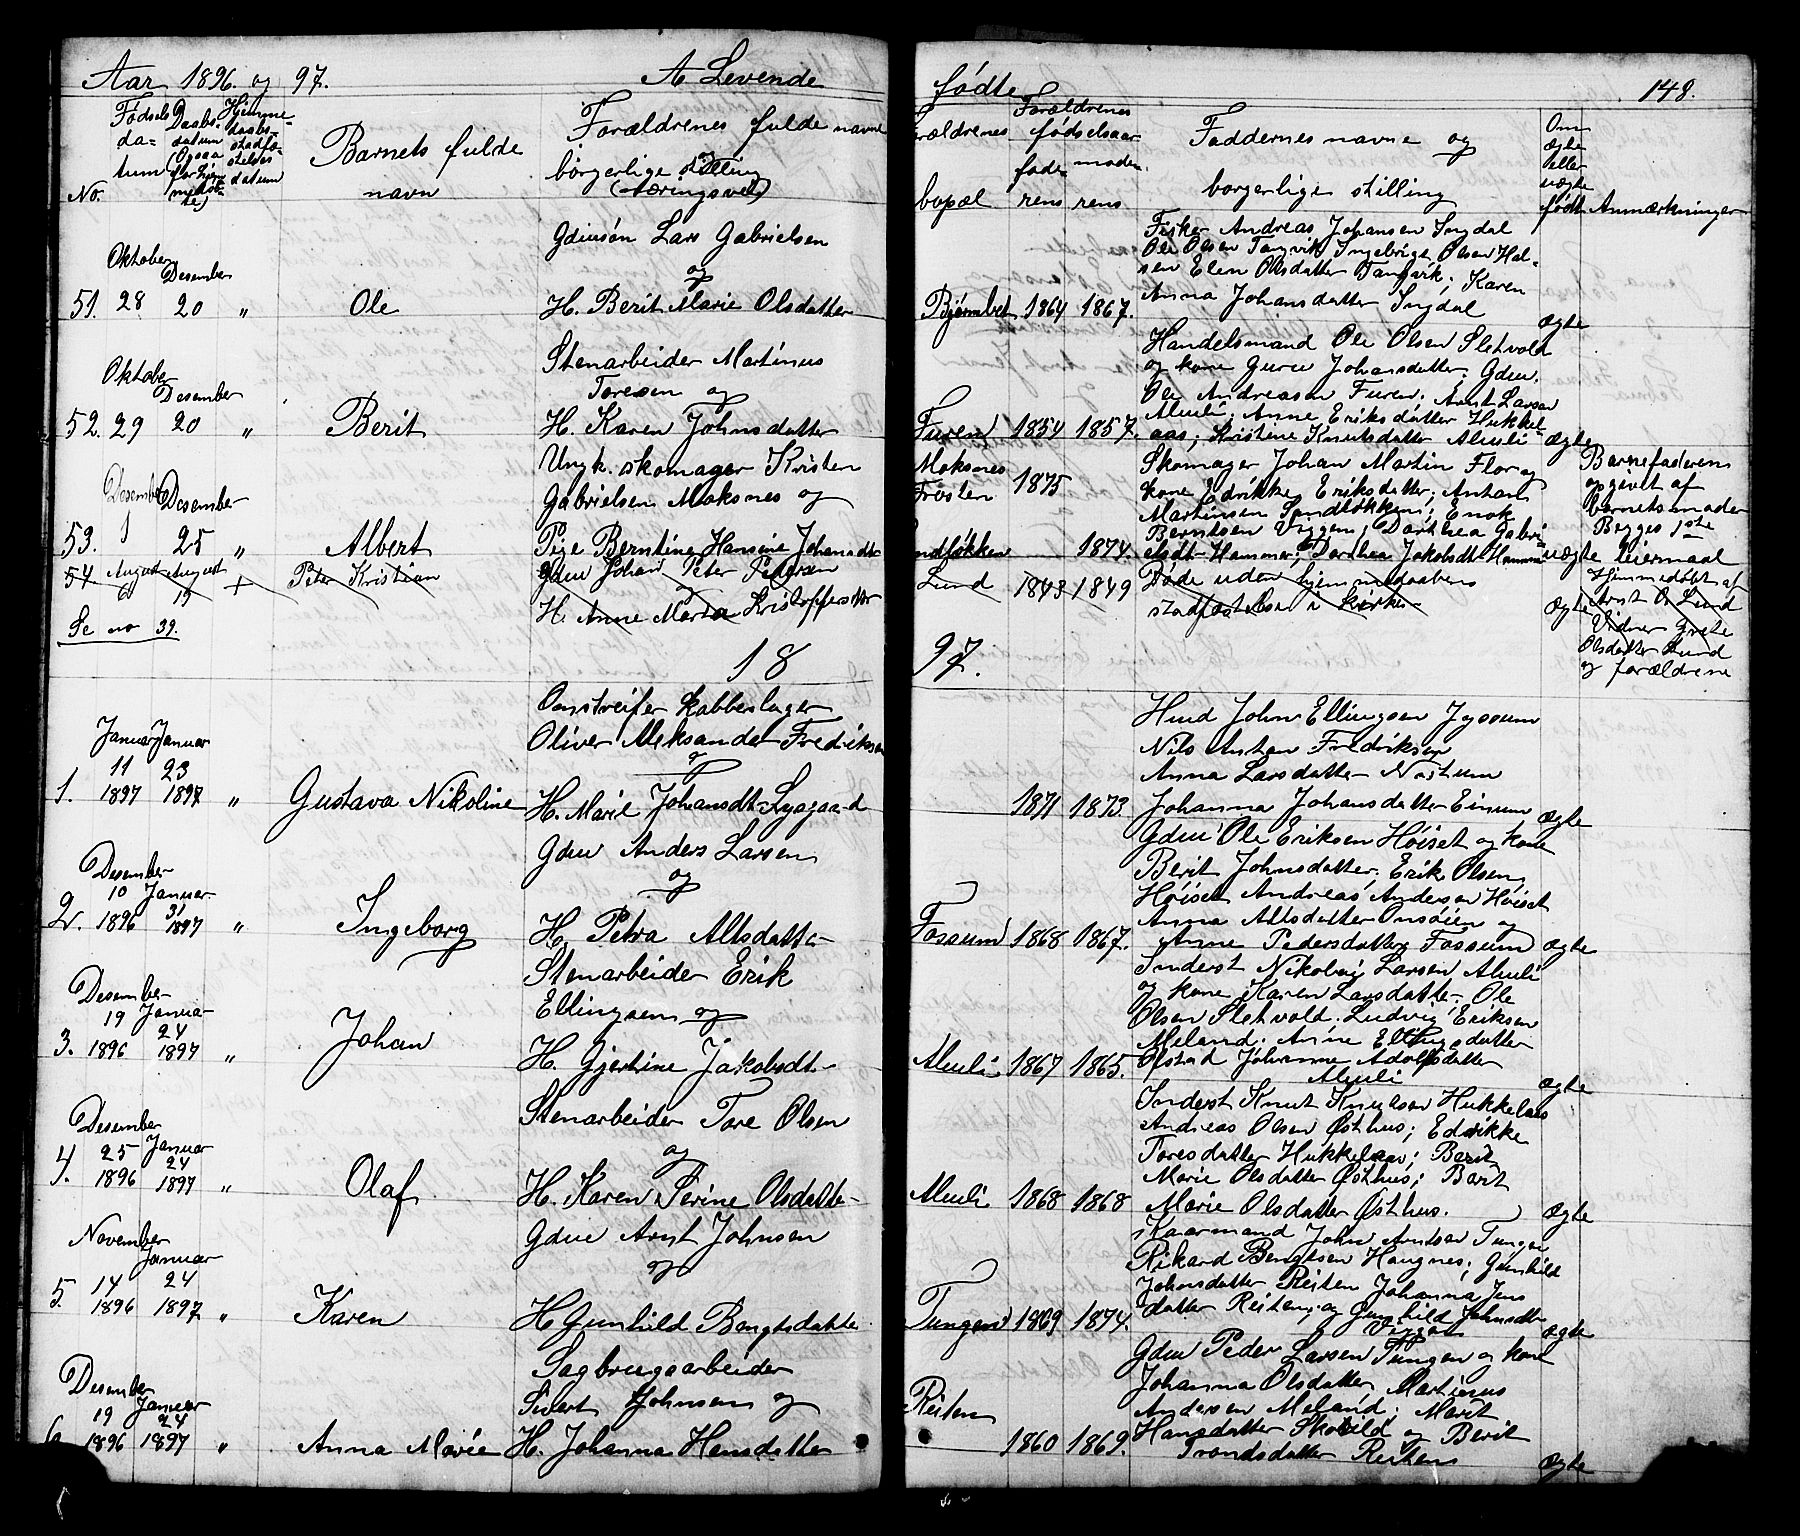 Aar 1896. og 97.
A Levende
No.
Fødsels
da=
tum
Daabs-
datum
(Ogsaa
for hjem
medøb
te)
Hjemme-
daabs-
stadfæ-
stelses
datum
Barnets fulde
navn
Forældrenes fulde navne
og
borgerlige stilling
(Næringsvei)
51.
Oktober
28
Desember
20
"
Ole
Gdmsøn Lars Gabrielsen
og
H. Berit Marie Olsdatter
52.
Oktober
29
Desember
20
"
Berit
Stenarbeider Martinus
Toresen og
H. Karen Johnsdatter
53.
Desember
1
Desember
25
"
Albert
Ungk. skomager Kristen
Gabrielsen Moksnes og
Pige Berntine Hansine Johansdtr
54
August
6
August
19
+
Peter Kristian
Gdm Johan Peter Pedersen
H. Anne Marta Kristoffersdtr
Se no 39.
18
1.
Januar
11
1897
Januar
23
1897
"
Gustava Nikoline
Omstreifer kobberslager
Oliver Aleksander Fredriksen
og
H. Marie Johansdt
2.
Desember
10
1896
Januar
31
1897
"
Ingeborg
Gdm Anders Larsen
og
H. Petra Altsdatter
3.
Desember
19
1896
Januar
24
1897
"
Johan
Stenarbeider Erik
Ellingsen og
H. Gjertine Jakobsdt
4.
Desember
25
1896
Januar
24
1897
"
Olaf
Stenarbeider Tore Olsen
og
H. Karen Serine Olsdatter
5.
November
14
1896
Januar
24
1897
"
Karen
Gdm Arnt Johnsen
og
H Gunhild Bengtsdatter
6.
Desember
19
1896
Januar
24
1897
"
Anna Marie
Sagbrugsarbeider
Sivert Johnsen og
H. Johanna Hansdatter
fødte
148.
Forældrenes
bopæl
Forældrenes
fødselsaar
fade-
rens
mode-
rens
Faddernes navne og
borgerlige stilling
Om
ægte
eller
uægte
født
Anmærkninger
Bjørnbet
1864
1867.
Fisker Andreas Johansen Ingdal
Ole Olsen Tangvik Ingebrigt Olsen Hal-
sen Elen Olsdatter Tangvik; Karen
Anna Johansdatter Ingdal
Ægte
Furen
1854
1857.
Handelsmand Ole Olsen Sletvold
og kone Guru Johansdatter; Gdm.
Ole Andreasen Furen; Arnt Larsen
Almli; Anne Eriksdatter Hukkel-
aas; Kristine Knutsdatter Almli
Ægte
Moksnes
Frosten
1875
1874.
Skomager Johan Martin Flor og
kone Edrikke Eriksdatter; Anton
Martinsen Sandløkken; Enok
Berntsen Viggen; Dorthea Gabri-
elsdt Hammer; Dorthea Jakobsdt Hammer
uægte
Barnefaderen
opgivet af
barnets moder
Begges 1ste
leiermaal
Lund
1843
1849
Døde uden hjemmedaabens
stadfæstelse i kirken
Ægte
Hjemmedøbt af
Arnt O Lund
Vidner Grete
Olsdatter Lund
og forældrene
97.
1871
1873.
Hmd John Ellingsen Jyssum
Nils Anton Fredriksen
Anna Larsdatter
Johanna Johansdatter Einum
Ægte
Fossum
1868
1867.
Gdm Ole Eriksen Høiset og kone
Berit Johnsdatter; Erik Olsen
Høiset Andreas Andersen Høiset
Anna Altsdatter Onsøien og
Anne Pedersdatter Fossum
Ægte
Almli
1867
1865.
Inderst Nikolai Larsen Almli
og kone Karen Larsdatter. Ole
Olsen Sletvold. Ludvig Eriksen
Meland. Anne Ellingsdatter
Ofstad Johanne Adolfsdatter
Almli
Ægte
Almli
1868
1868
Inderst Knut Knutsen Hukkelaas
Andreas Olsen Østhus; Edrikke
Toresdatter Hukkelaas; Berit
Marie Olsdatter Østhus; Berit
Marie Olsdatter Østhus.
Ægte
Tungen
1869
1874.
Kaarmand John Arntsen Tungen
Rikard Bengtsen Haugnes; Gunhild
Johnsdatter Reiten Johanna Jens
datter Reiten; og Gunhild Johnsdt
Viggen
Ægte
Reiten
1860
1869.
Gdm Peder Larsen Tungen og kone
Johanna Olsdatter; Martinus
Andersen Meland. Marit
Hansdatter og Berit
Trondsdatter Reiten
Ægte